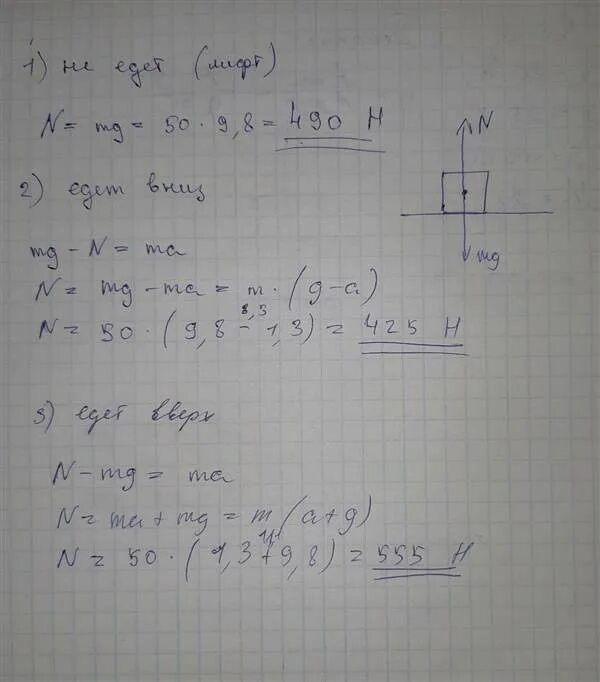 1) не едет (лифт)
N = mg = 50 · 9,8 = 490 Н
N
mg
2) едет вниз
mg - N = ma
N = mg - ma = m · (g - a)
8,5
N = 50 · (9,8 - 1,3) = 425 Н
3) едет вверх
N - mg = ma
N = ma + mg = m (a + g)
11,1
N = 50 · (1,3 + 9,8) = 555 Н